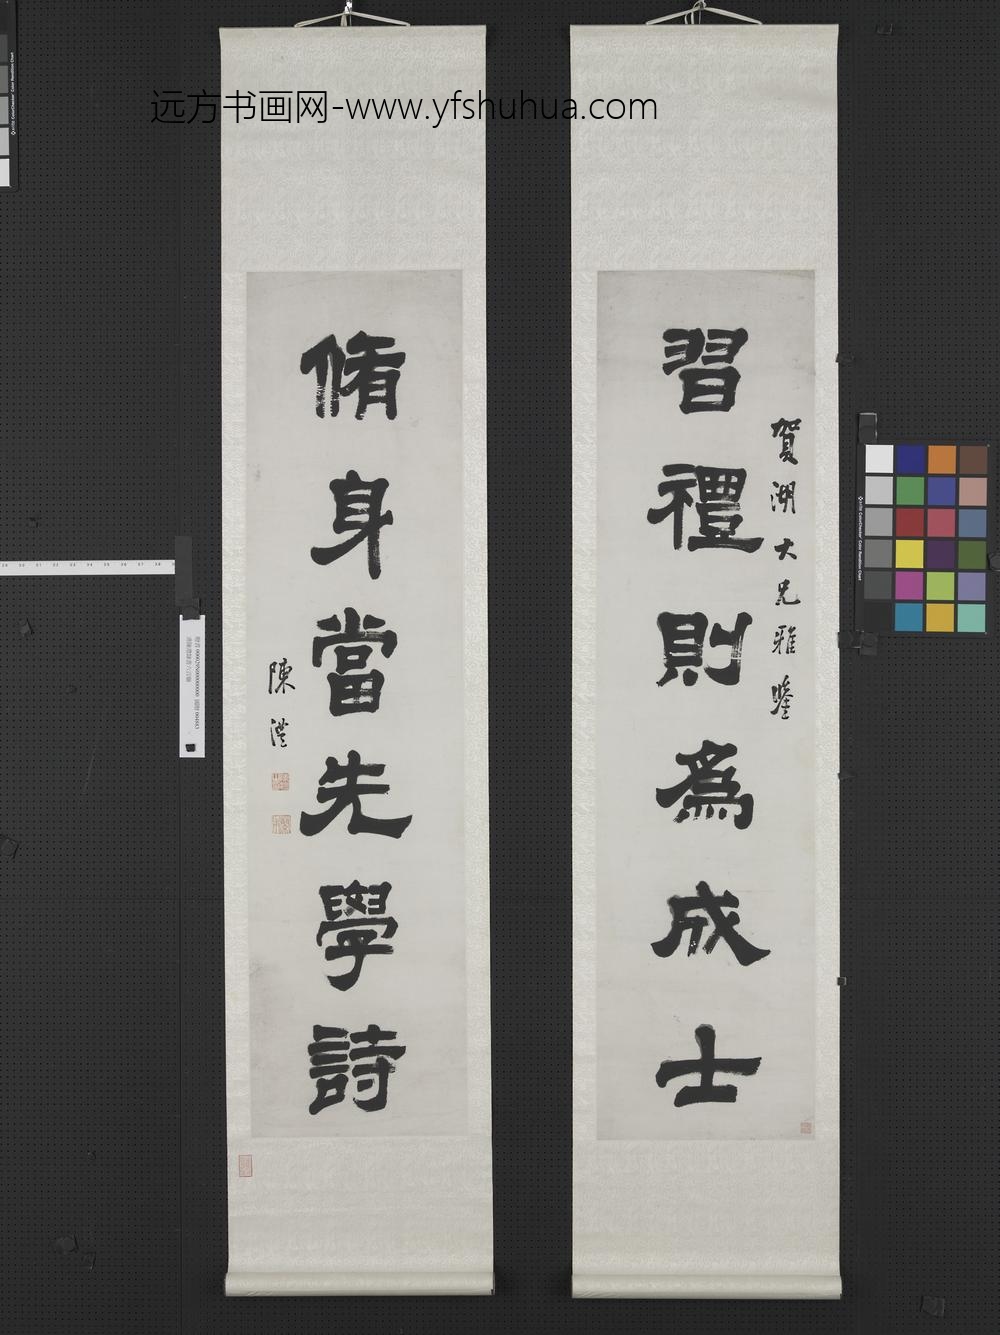 远方书画网-www.yfshuhua.com
習禮則爲成士
賀湖大兄雅鑒
脩身當先學詩
陳澧